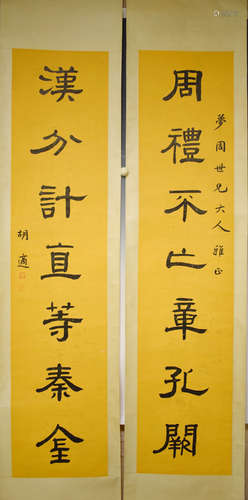 周禮不亡章孔闕
夢周世兄大人雅正
漢分計直等秦金
胡適